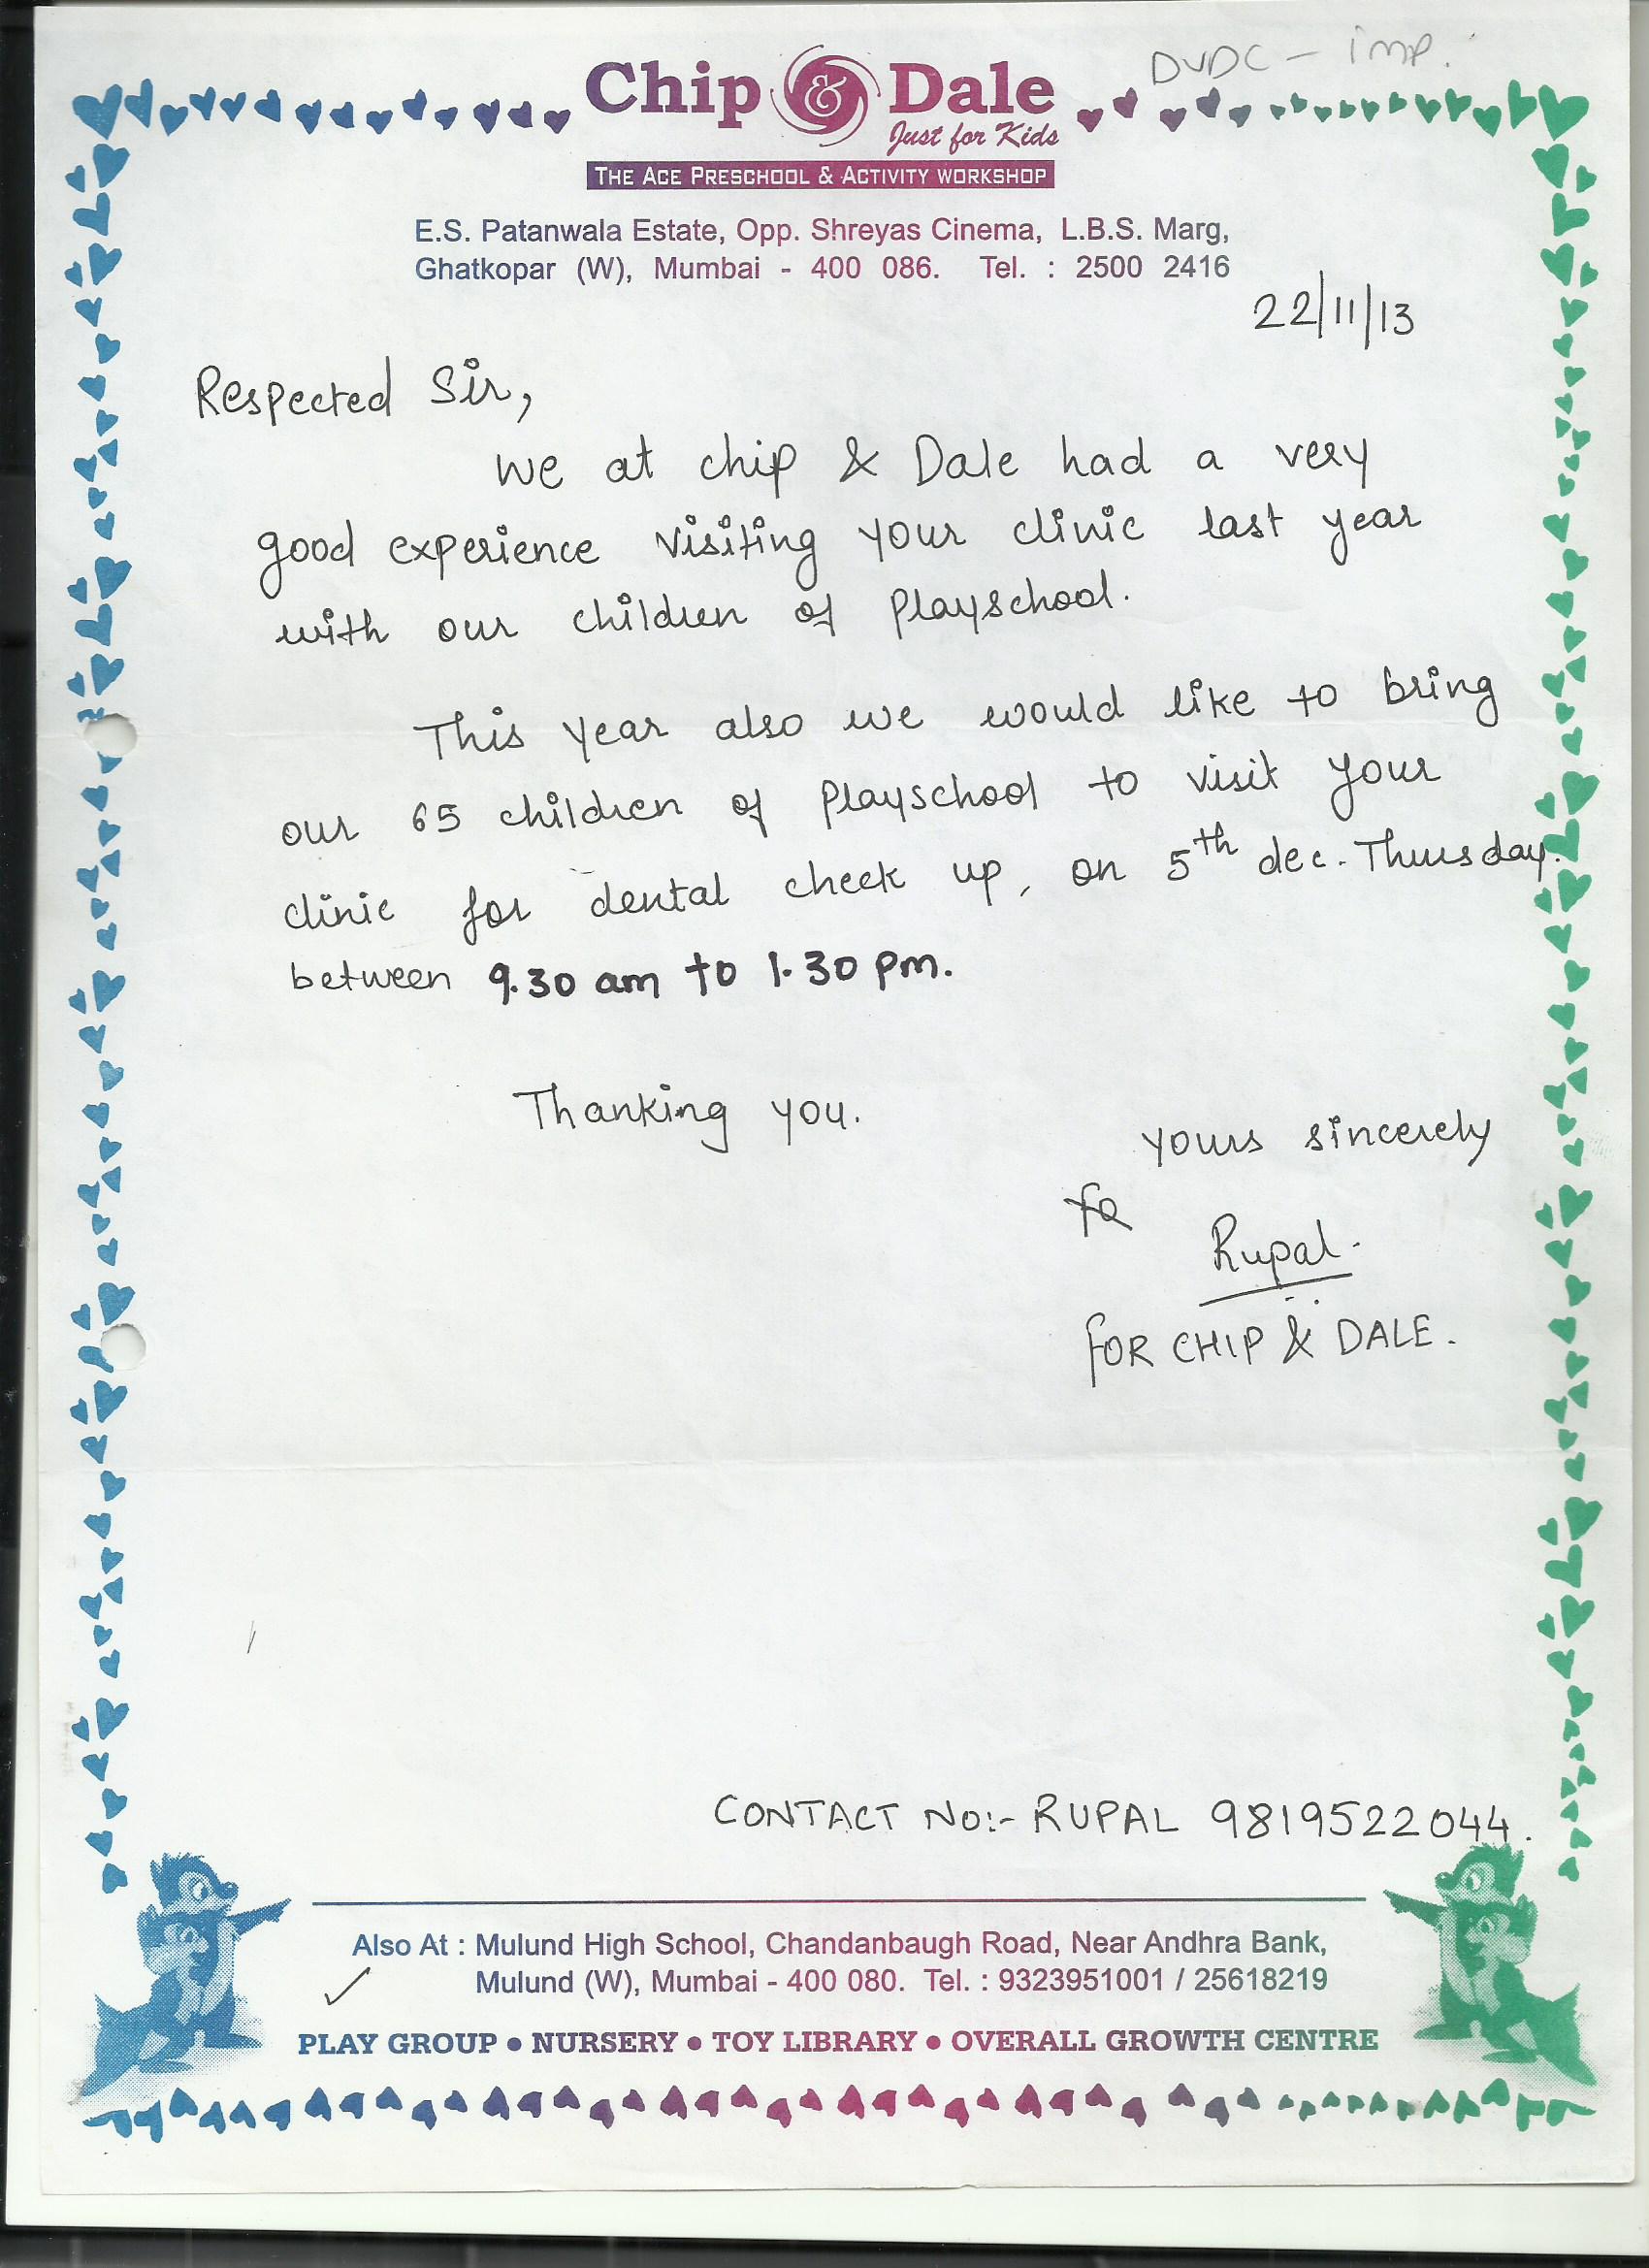 DVDC - imp.
Chip & Dale
Just for Kids
THE ACE PRESCHOOL & ACTIVITY WORKSHOP
E.S. Patanwala Estate, Opp. Shreyas Cinema, L.B.S. Marg,
Ghatkopar (W), Mumbai - 400 086. Tel. : 2500 2416
22/11/13
Respected Sir,
We at chip & Dale had a very
good experience visiting your clinic last year
with our children of Playschool.
This year also we would like to bring
our 65 children of Playschool to visit your
clinic for dental check up, on 5th dec. Thursday.
between 9.30 am to 1.30 pm.
Thanking you.
Yours sincerely
Rupal.
FOR CHIP & DALE.
CONTACT No:- RUPAL 9819522044.
Also At : Mulund High School, Chandanbaugh Road, Near Andhra Bank,
Mulund (W), Mumbai - 400 080. Tel. : 9323951001 / 25618219
PLAY GROUP • NURSERY • TOY LIBRARY • OVERALL GROWTH CENTRE